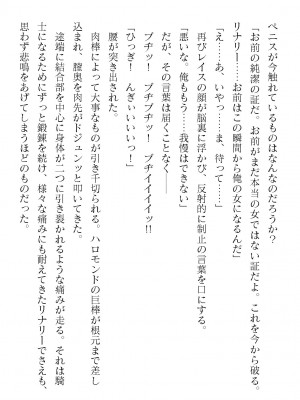 ペニスが今触れているものはなんなのだろうか？
「お前の純潔の証だ。お前がまだ本当の女ではない証だよ。これを今から破る。
リナリー……お前はこの瞬間から俺の女になるんだ」
「え……あ、いやっ……ま、待って……」
再びレイスの顔が脳裏に浮かび、反射的に制止の言葉を口にする。
「悪いな。俺ももう……我慢はできない」
だが、その言葉は届くことなく――
ブヂッ！　ブヂブヂッ！　ブヂイイイイッ!!
「ひっぎ！　んぎぃいいいっ！」
腰が突き出された。
肉棒によって大事なものが引き千切られる。ハロモンドの巨棒が根元まで差し
込まれ、膣奥を肉先がドジュンッと叩いてきた。
途端に結合部を中心に身体が二つに引き裂かれるような痛みが走る。それは騎
士になるためにずっと鍛錬を続け、様々な痛みにも耐えてきたリナリーでさえも、
思わず悲鳴をあげてしまうほどのものだった。